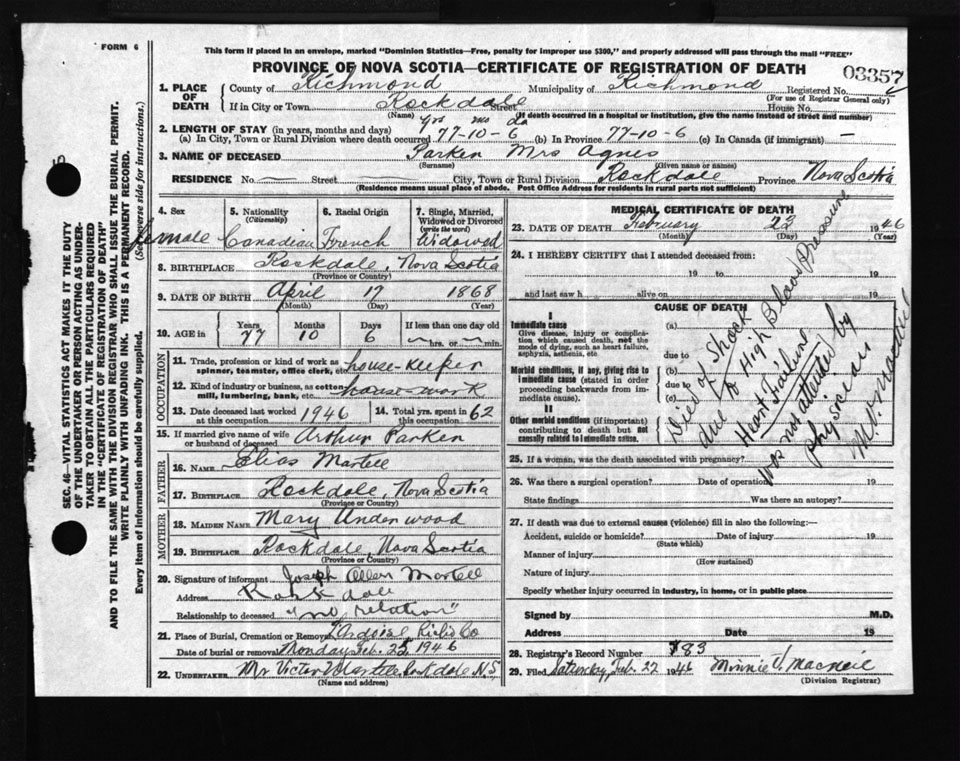 FORM 6
This form if placed in an envelope, marked "Dominion Statistics—Free, penalty for improper use $300," and properly addressed will pass through the mail "FREE"
PROVINCE OF NOVA SCOTIA—CERTIFICATE OF REGISTRATION OF DEATH
03357
SEC. 46—VITAL STATISTICS ACT MAKES IT THE DUTY
OF THE UNDERTAKER OR PERSON ACTING AS UNDER-
TAKER TO OBTAIN ALL THE PARTICULARS REQUIRED
IN THE "CERTIFICATE OF REGISTRATION OF DEATH"
AND TO FILE THE SAME WITH THE DIVISION REGISTRAR WHO SHALL ISSUE THE BURIAL PERMIT.
WRITE PLAINLY WITH UNFADING INK. THIS IS A PERMANENT RECORD.
Every item of Information should be carefully supplied. (See reverse side for instructions.)
1. PLACE OF DEATH
County of Richmond Municipality of Richmond Registered No.
(For use of Registrar General only)
If in City or Town Rockdale Street House No.
(Name) (If death occurred in a hospital or institution, give the name instead of street and number)
2. LENGTH OF STAY (in years, months and days) yrs mo da
(a) In City, Town or Rural Division where death occurred 77-10-6 (b) In Province 77-10-6 (c) In Canada (if immigrant) —
3. NAME OF DECEASED Parker Mrs Agnes
(Surname) (Given name or names)
RESIDENCE No. — Street City, Town or Rural Division Rockdale Province Nova Scotia
(Residence means usual place of abode. Post Office Address for residents in rural parts not sufficient)
4. Sex
female
5. Nationality
(Citizenship)
Canadian
6. Racial Origin
French
7. Single, Married, Widowed or Divorced
(write the word)
Widowed
8. BIRTHPLACE Rockdale, Nova Scotia
(Province or Country)
9. DATE OF BIRTH April 17 1868
(Month) (Day) (Year)
10. AGE in
Years Months Days If less than one day old
77 10 6 hrs. or min.
OCCUPATION
11. Trade, profession or kind of work as spinner, teamster, office clerk, etc. house-keeper
12. Kind of industry or business, as cotton-mill, lumbering, bank, etc. house-work
13. Date deceased last worked at this occupation 1946 14. Total yrs. spent in 62
15. If married give name of wife or husband of deceased Arthur Parker
FATHER
16. NAME Elias Martell
17. BIRTHPLACE Rockdale, Nova Scotia
(Province or Country)
MOTHER
18. MAIDEN NAME Mary Underwood
19. BIRTHPLACE Rockdale, Nova Scotia
(Province or Country)
20. Signature of informant Joseph Allen Martell
Address Rockdale
Relationship to deceased "no relation"
21. Place of Burial, Cremation or Removal L'Ardoise, Rich Co
Date of burial or removal Monday Feb. 25, 1946
22. UNDERTAKER Mr Victor Martell Rockdale N.S.
(Name and address)
MEDICAL CERTIFICATE OF DEATH
23. DATE OF DEATH February 23 1946
(Month) (Day) (Year)
24. I HEREBY CERTIFY that I attended deceased from:
19 to 19
and last saw h alive on 19
CAUSE OF DEATH
I
Immediate cause
Give disease, injury or complication which caused death, not the mode of dying, such as heart failure, asphyxia, asthenia, etc.
Morbid conditions, if any, giving rise to immediate cause (stated in order proceeding backwards from immediate cause).
II
Other morbid conditions (if important) contributing to death but not causally related to immediate cause.
(a)
due to
(b)
due to
(c)
Died of Shock
due to High Blood Pressure
Heart Failure
was not attended by
physician
25. If a woman, was the death associated with pregnancy?
26. Was there a surgical operation? Date of operation 19
State findings Was there an autopsy?
27. If death was due to external causes (violence) fill in also the following:—
Accident, suicide or homicide? Date of injury 19
(State which)
Manner of injury
(How sustained)
Nature of injury
Specify whether injury occurred in industry, in home, or in public place
Signed by M.D.
Address Date 19
28. Registrar's Record Number 83
29. Filed Saturday, Feb. 1946 Minnie V. MacNeil
(Division Registrar)